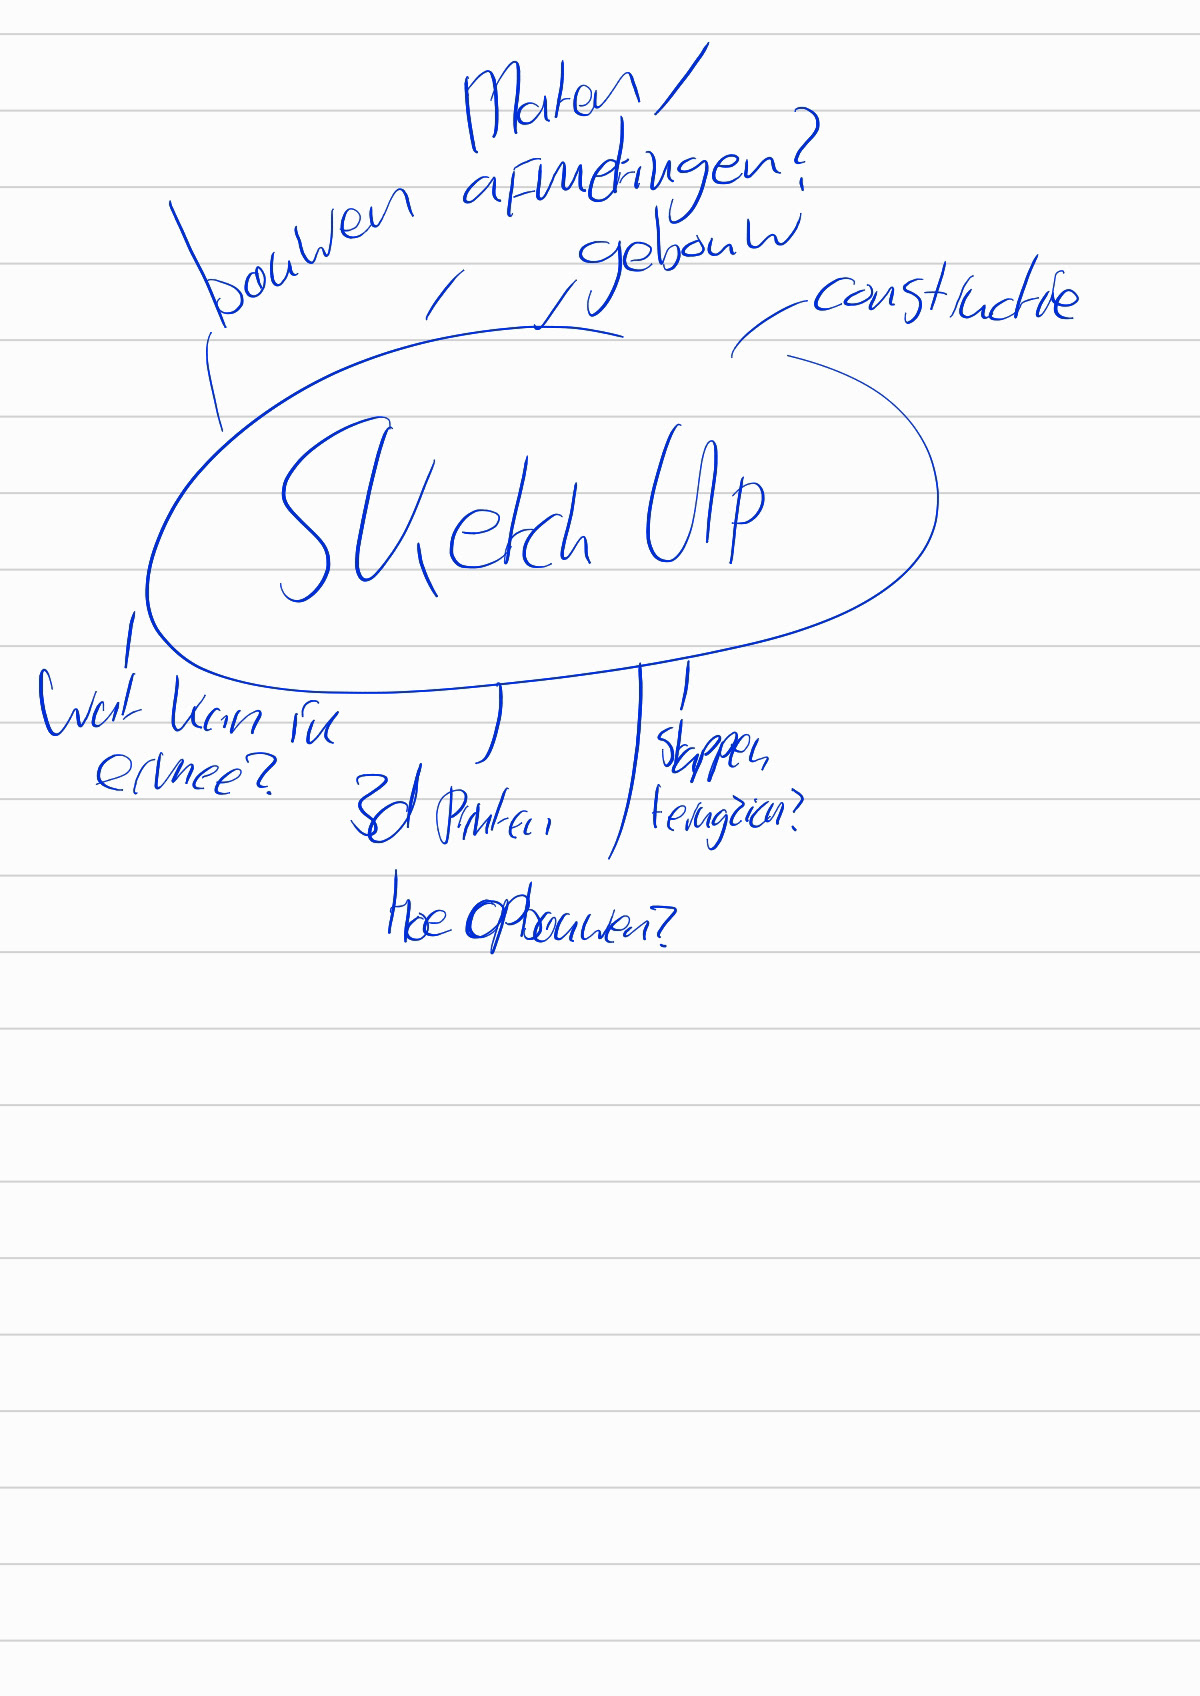 Maten/
afmetingen?
bouwen
gebouw
constructie
Sketch Up
Wat kan ik
ermee?
3d Printen
stappen
terugzien?
Hoe opbouwen?